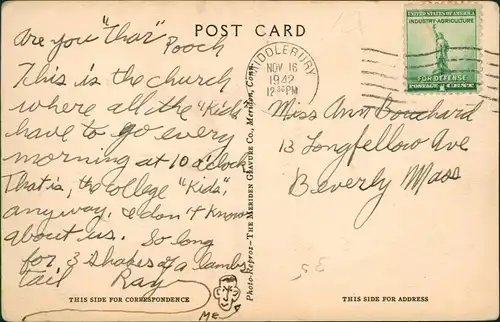 POST CARD
Are you "Thar" Pooch
This is the church
where all the "Kids"
have to go every
morning at 10 o'clock
That is, the college "Kids",
anyway. I don't know
about us. So long
for 3 shakes of a lambs
tail Ray
ME
THIS SIDE FOR CORRESPONDENCE
Photo-Repros - THE MERIDEN GRAVURE CO., Meriden, Conn.
MIDDLEBURY
NOV 16
1942
12 30 PM
UNITED STATES OF AMERICA
INDUSTRY-AGRICULTURE
FOR DEFENSE
POSTAGE 1 CENT
Miss Ann Bouchard
13 Longfellow Ave
Beverly Mass
THIS SIDE FOR ADDRESS